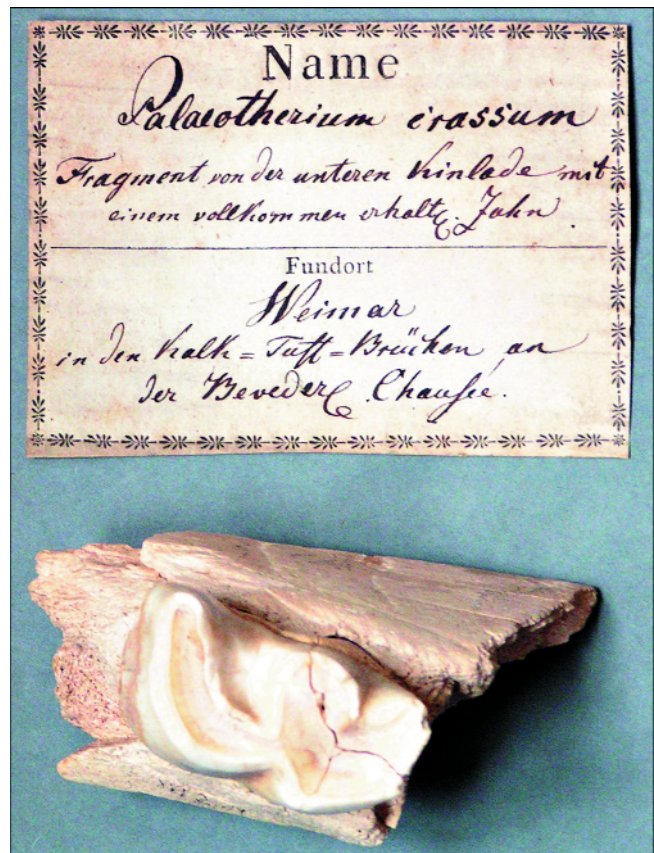 Name
Palaeotherium crassum
Fragment von der unteren Kinlade mit
einem vollkommen erhalt. Zahn
Fundort
Weimar
in den Kalk=Tuff=Brüchen an
der Beveder Chaussée.